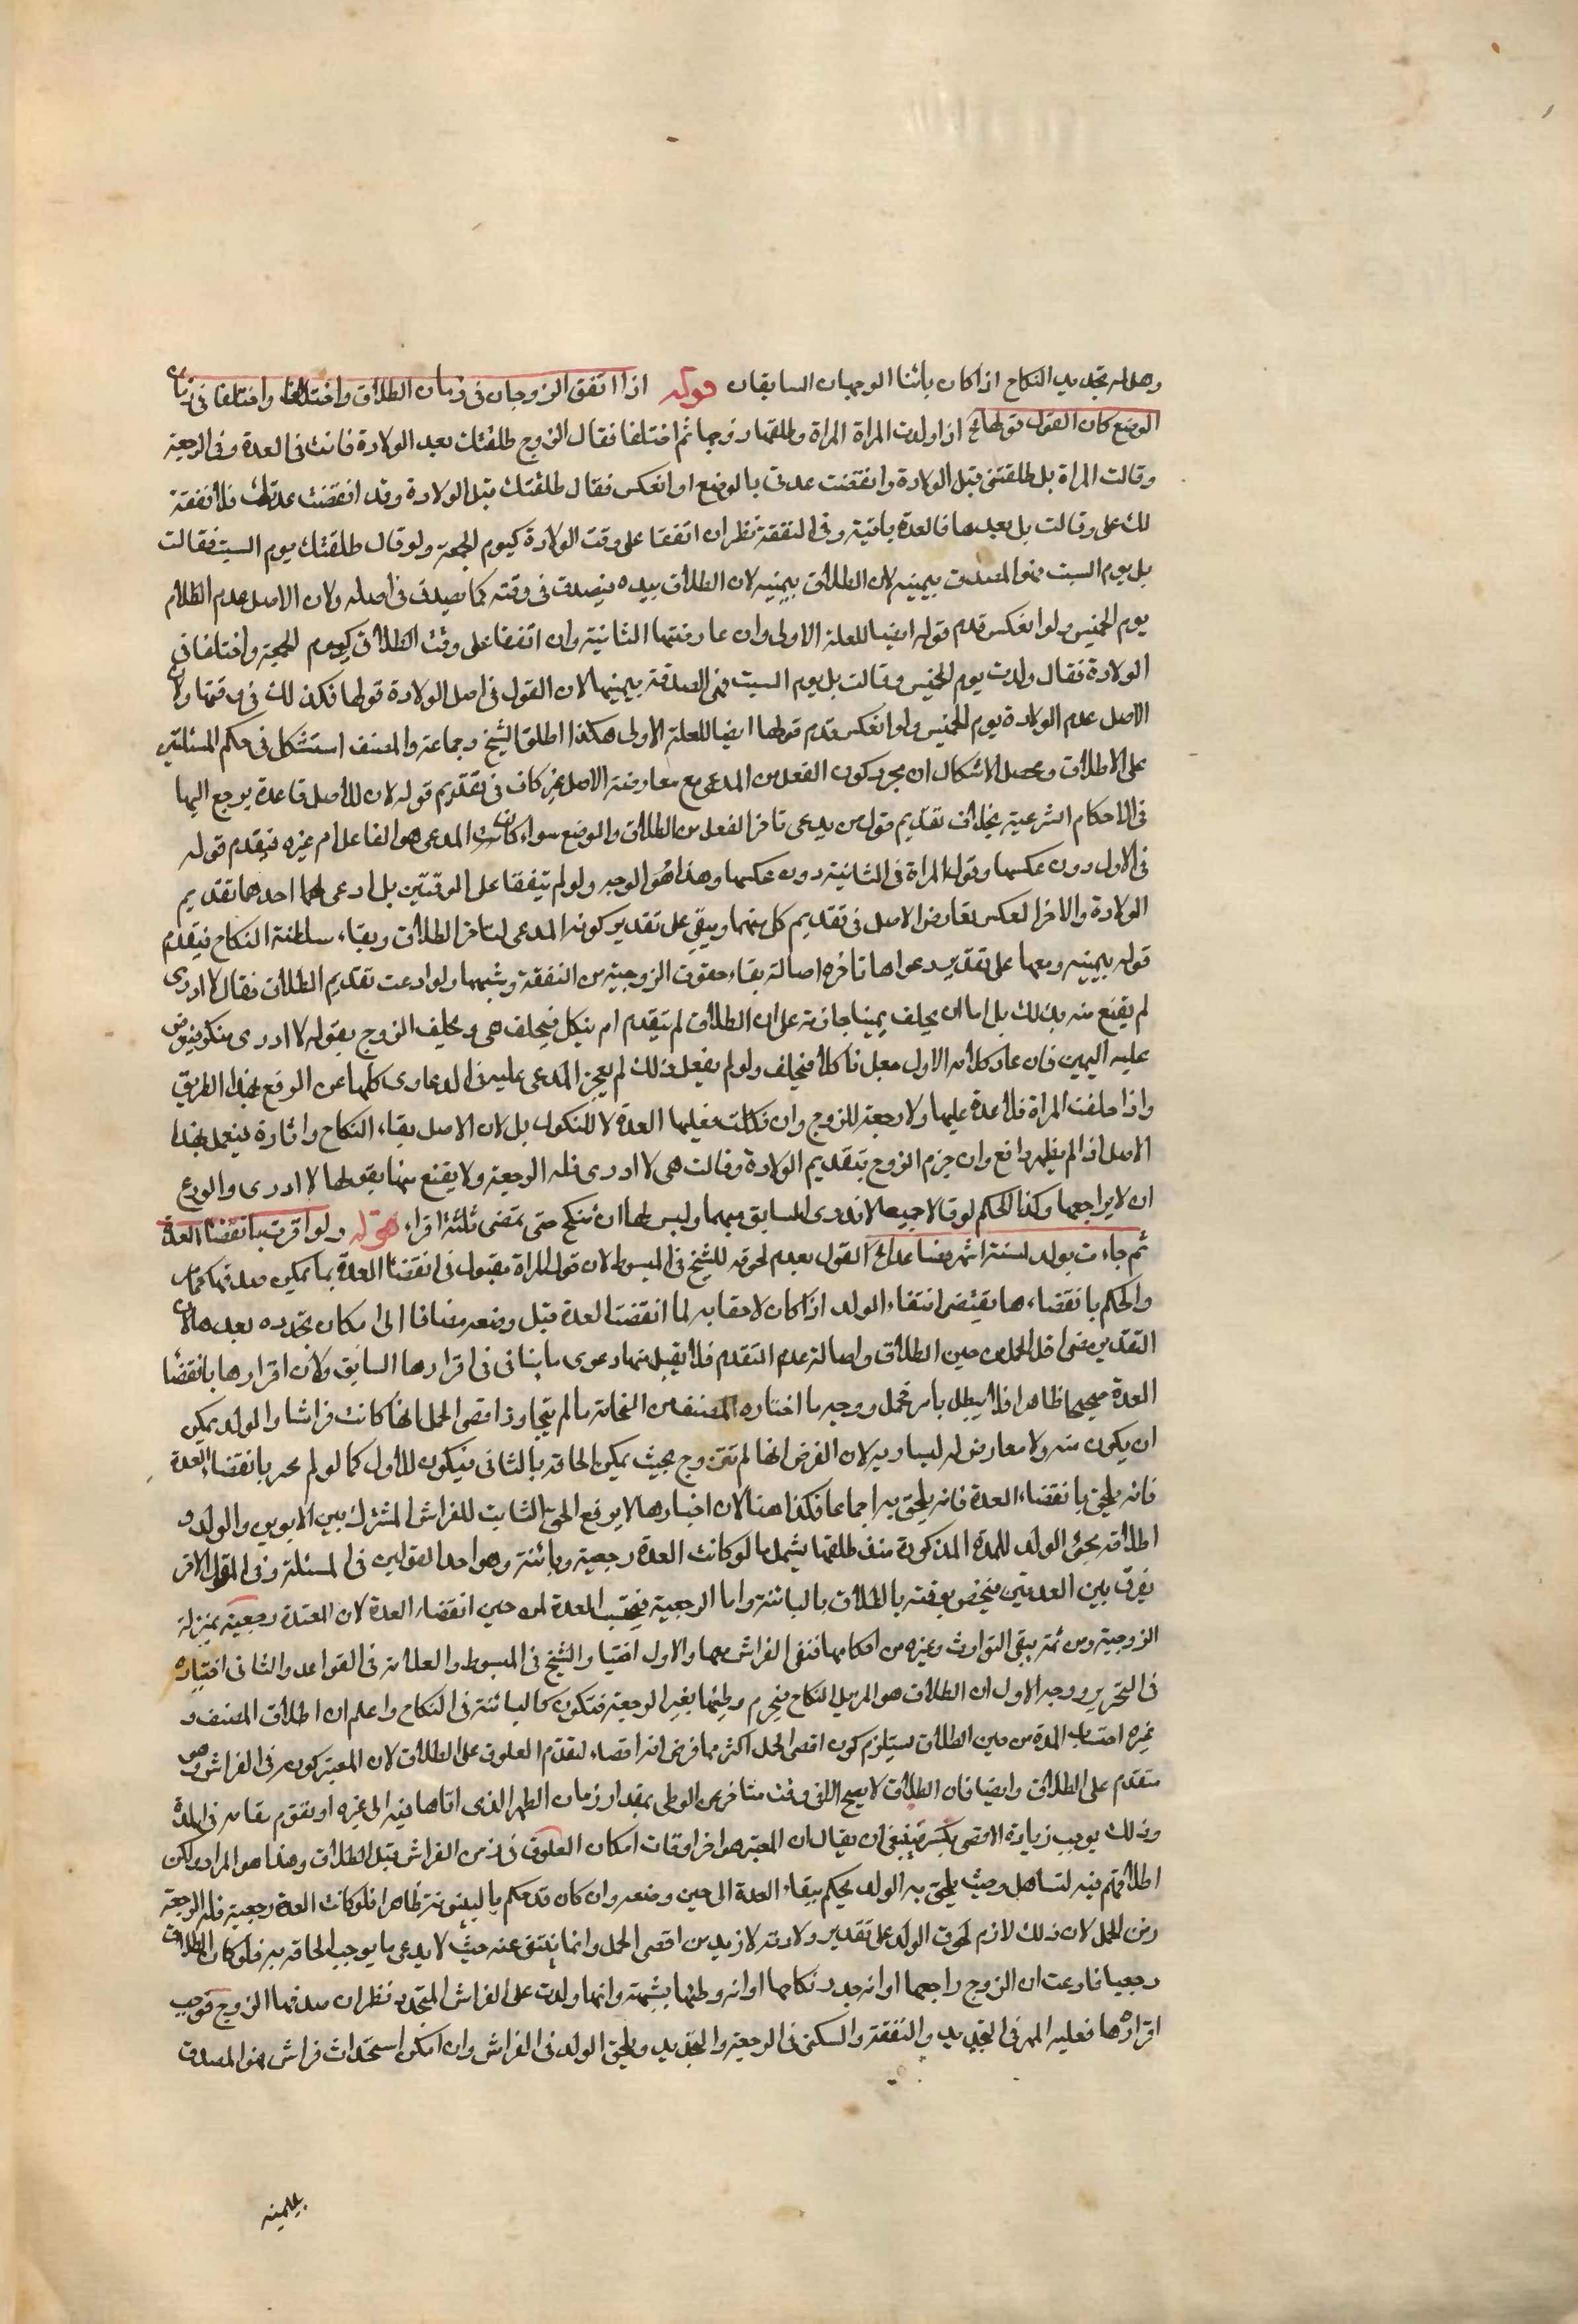 وهل له تجديد النكاح اذا كان بائنا الوجهان السابقان قوله اذا اتفق الزوجان فى زمان الطلاق واختلفا واختلفا فى زمان
الوضع كان القول قولها الخ اذا ولدت المراة المراة وطلقها زوجها ثم اختلفا فقال الزوج طلقتك بعد الولادة فانت فى العدة وفى الرجعية
وقالت المراة بل طلقتنى قبل الولادة وانقضت عدتى بالوضع او انعكس فقال طلقتك قبل الولادة وقد انقضت عدتك فلا نفقة
لك على وقالت بل بعدها فالعدة باقية وفى النفقة نظر ان اتفقا على وقت الولادة كيوم الجمعة ولو قال طلقتك يوم السبت فقالت
بل يوم السبت فهو المصدق بيمينه لان الطلاق بيمينه لان الطلاق بيده فيصدق فى وقته كما يصدق فى اصله ولان الاصل عدم الطلاق
يوم الخميس ولو انعكس قدم قوله ايضا للعلة الاولى وان عارضتها الثانية وان اتفقا على وقت الطلاق كيوم الجمعة واختلفا فى
الولادة فقال ولدت يوم الخميس وقالت بل يوم السبت فهى المصدقة بيمينها لان القول فى اصل الولادة قولها فكذلك فى وقتها ولان
الاصل عدم الولادة يوم الخميس ولو انعكس قدم قولها ايضا للعلة الاولى هكذا اطلق الشيخ وجماعة والمصنف استشكل فى حكم المسئلتين
على الاطلاق ومحصل الاشكال ان مجرد كون الفعل من المدعى مع معارضة الاصل غير كاف فى تقديم قوله لان للاصل قاعدة يرجع اليها
فى الاحكام الشرعية بخلاف تقديم قول من يدعى تاخر الفعل من الطلاق والوضع سواء كان المدعى هو الفاعل ام غيره فيقدم قوله
فى الاول دون عكسها وقول المراة فى الثانية دون عكسها وهذا هو الوجه ولو لم يتفقا على الوقتين بل ادعى احدهما تقديم
الولادة والاخر العكس تعارض الاصل فى تقديم كل منهما ويبقى على تقدير كونه المدعى لتاخر الطلاق وبقاء سلطنة النكاح فيقدم
قوله بيمينه ومعها على تقدير دعواها تاخره اصالة بقاء حقوق الزوجية من النفقة وشبهها ولو ادعت تقديم الطلاق فقال لا ادرى
لم يقنع منه بذلك بل اما ان يحلف يمينا جازمة على ان الطلاق لم يتقدم ام ينكل فتحلف هى ويجعل الزوج بقوله لا ادرى منكرا فيعرض
عليه اليمين فان عاد كلامه الاول جعل ناكلا فتحلف ولو لم يفعل ذلك لم يعجز المدعى عليه فى الدعاوى كلها عن الدفع بهذا الطريق
واذا حلفت المراة فلا عدة عليها ولا رجعة للزوج وان نكلت فعليها العدة لا للنكول بل لان الاصل بقاء النكاح واثاره فيعمل بهذا
الاصل اذا لم يظهر دافع وان جزم الزوج بتقديم الولادة وقالت هى لا ادرى فله الرجعة ولا يقنع منها بقولها لا ادرى والورع
ان لا يراجعها وكذا الحكم لو قالا جميعا لا ندرى السابق منهما وليس لها ان تنكح حتى تمضى ثلثة اقراء قوله ولو اقرت بانقضاء العدة
ثم جاءت بولد لستة اشهر فصاعدا الخ القول بعدم لحوقه للشيخ فى المبسوط لان قول المراة مقبول فى انقضاء العدة بما يمكن صدقها
والحكم بانقضاءها يقتضى انتفاء الولد اذ لو كان لاحقا به لما انقضت العدة قبل وضعه مضافا الى امكان تجدده بعدها لان
التقدير مضى اقل الحمل من حين الطلاق واصالة عدم التقدم فلا يقبل منها دعوى ما ينافى فى اقرارها السابق ولان اقرارها بانقضاء
العدة صحيح ظاهرا فلا يبطل بامر محتمل ووجه ما اختاره المصنف من الالحاق به ما لم يتجاوز اقصى الحمل انها كانت فراشا والولد يمكن
ان يكون منه ولا معارض له ليساويه لان الفرض انها لم تتزوج بحيث يمكن الحاقه بالثانى فيكون للاول كما لو لم تقر بانقضاء العدة
فانه يلحق بانقضاء العدة فانه يلحق به اجماعا فكذا هنا لان اخبارها لا يرفع الحق الثابت للفراش المشترك بين الابوين والولد و
اطلاقه بحق الولد للمدة المذكورة منذ طلقها يشمل ما لو كانت العدة رجعية وبائنة وهو احد القولين فى المسئلة وفى القول الاخر
يفرق بين العدتين فيختص بوقته بالطلاق بالبائنة واما الرجعية فيحتسب المدة من حين انقضاء العدة لان المعتدة رجعية بمنزلة
الزوجية ومن ثمة يبقى التوارث وغيره من احكامها فتبقى الفراش معها والاول اختيار الشيخ فى المبسوط والعلامة فى القواعد والثانى اختياره
فى التحرير ووجه الاول ان الطلاق هو المزيل للنكاح فيحرم وطيها بغير الرجعة فتكون كالبائنة فى النكاح واعلم ان اطلاق المصنف و
غيره احتساب المدة من حين الطلاق يستلزم كون اقصى الحمل اكثر مما فرض انه اقصاه لتقدم العلوق على الطلاق لان المعتبر كونه فى الفراش وهو
متقدم على الطلاق وايضا فان الطلاق لا يصح الا فى وقت متاخر عن الوطى بمقدار زمان الطهر الذى اتاها فيه الى غيره او تقوم مقامه فى المدة
وذلك يوجب زيادة الاقصى بكثير فينبغى ان يقال ان المعتبر هو اخر اوقات امكان العلوق فى زمن الفراش قبل الطلاق وهذا هو المراد ولكن
اطلاقهم فيه لتساهل وحيث يلحق به الولد يحكم ببقاء العدة الى حين وضعه وان كان قد حكم بالبينونة ظاهرا فلو كانت العدة رجعية فله الرجعة
زمن الحمل لان ذلك لازم لحوق الولد على تقدير ولادته لازيد من اقصى الحمل وانما ينتفى عنه حيث لا يدعى ما يوجب الحاقه به فلو كان الطلاق
رجعيا فادعت ان الزوج راجعها او انه جدد نكاحها او انه وطئها بشبهة وانها ولدت على الفراش المتجدد نظر ان صدقها الزوج فوجب
اقرارها فعليه المهر فى التجديد والنفقة والسكنى فى الرجعية والتجديد ويلحق الولد فى الفراش وان انكر استحداث فراش فهو المصدق
بيمينه